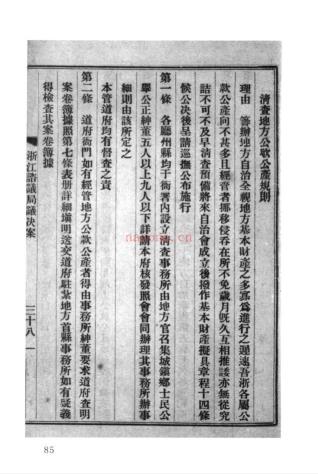 清查地方公款公產規則
理由　籌辦地方自治全視地方基本財產之多寡爲進行之遲速吾浙各屬公
款公產向不甚多且經管者挪移侵吞在所不免歲月旣久互相推諉亦無從究
詰不可不及早清查預備將來自治會成立後撥作基本財產擬具章程十四條
候公決後呈請巡撫公布施行
第一條　各廳州縣均于衙署內設立清查事務所由地方官召集城鎭鄉士民公
舉公正紳董五人以上九人以下詳請本府核發照會會同辦理其事務所辦事
細則由該所定之
本管道府均有督查之責
第二條　道府衙門如有經管地方公款公產者得由事務所紳董要求道府查明
案卷簿據照第七條表册詳細塡明送交道府駐紮地方首縣事務所如有疑義
得檢查其案卷簿據
浙江諮議局議決案
三十八
85